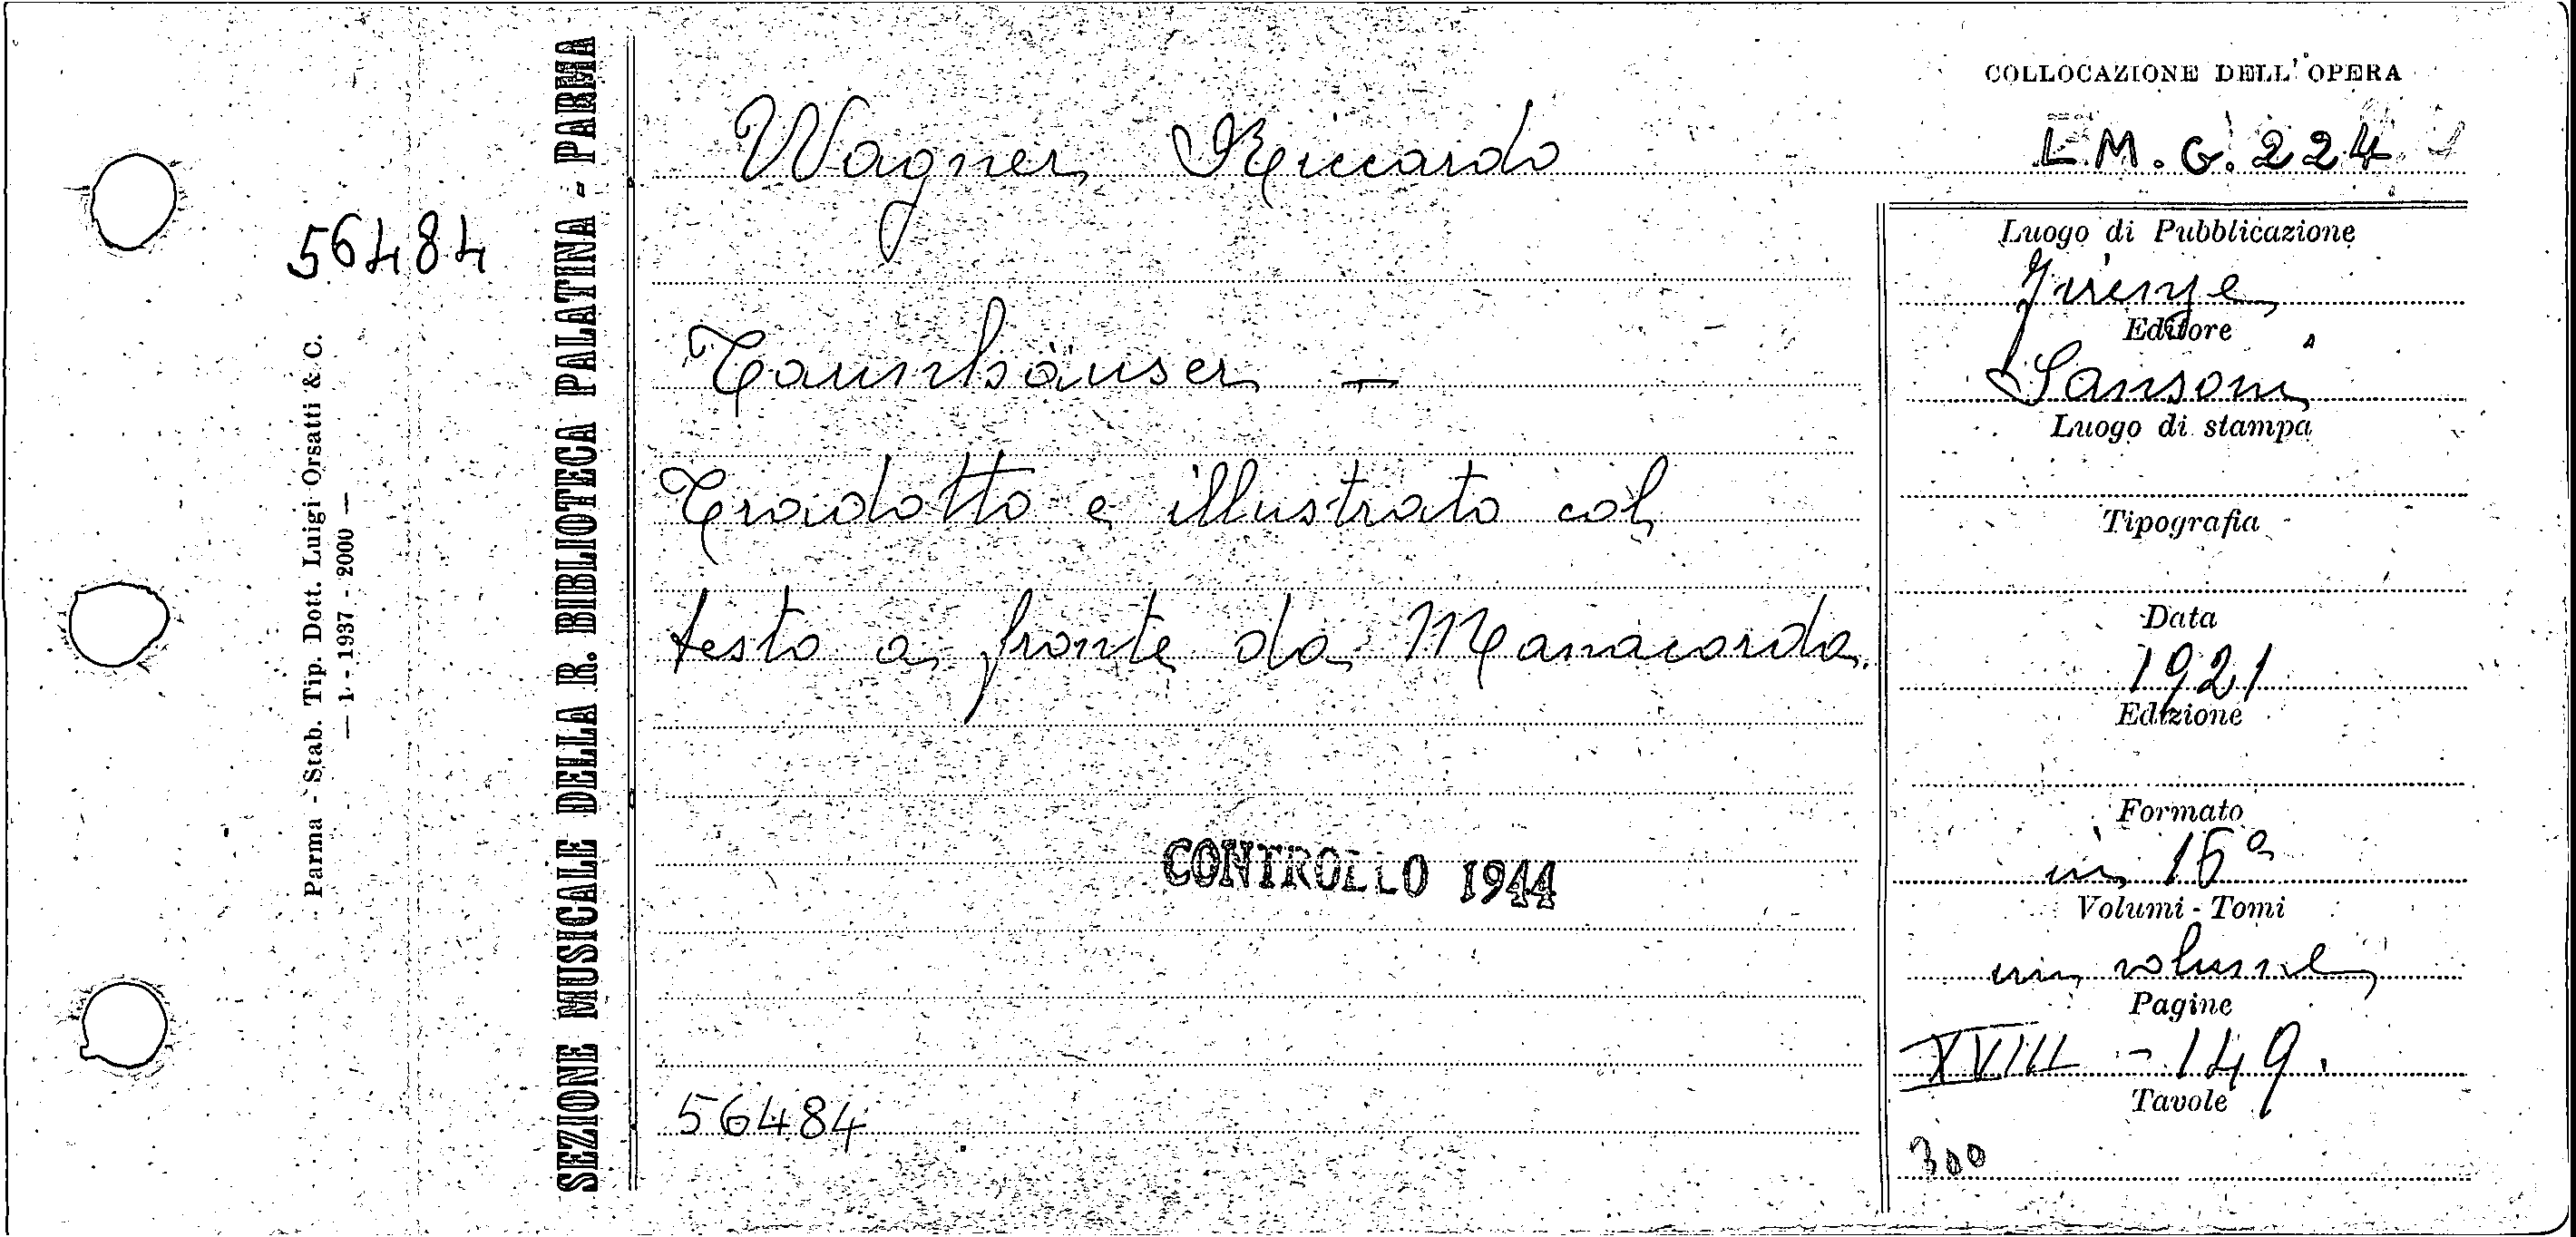 56484
Parma - Stab. Tip. Dott. Luigi Orsatti & C.
— 1 - 1937 - 2000 —
SEZIONE MUSICALE DELLA R. BIBLIOTECA PALATINA - PARMA
Wagner Riccardo
Tannhäuser -
Tradotto e illustrato col
testo a fronte da Manacorda.
CONTROLLO 1944
56484
COLLOCAZIONE DELL'OPERA
L.M.G. 224
Luogo di Pubblicazione
Firenze
Editore
Sansoni
Luogo di stampa
Tipografia
Data
1921
Edizione
Formato
in 16°
Volumi - Tomi
un volume
Pagine
XVIII - 149.
Tavole
300